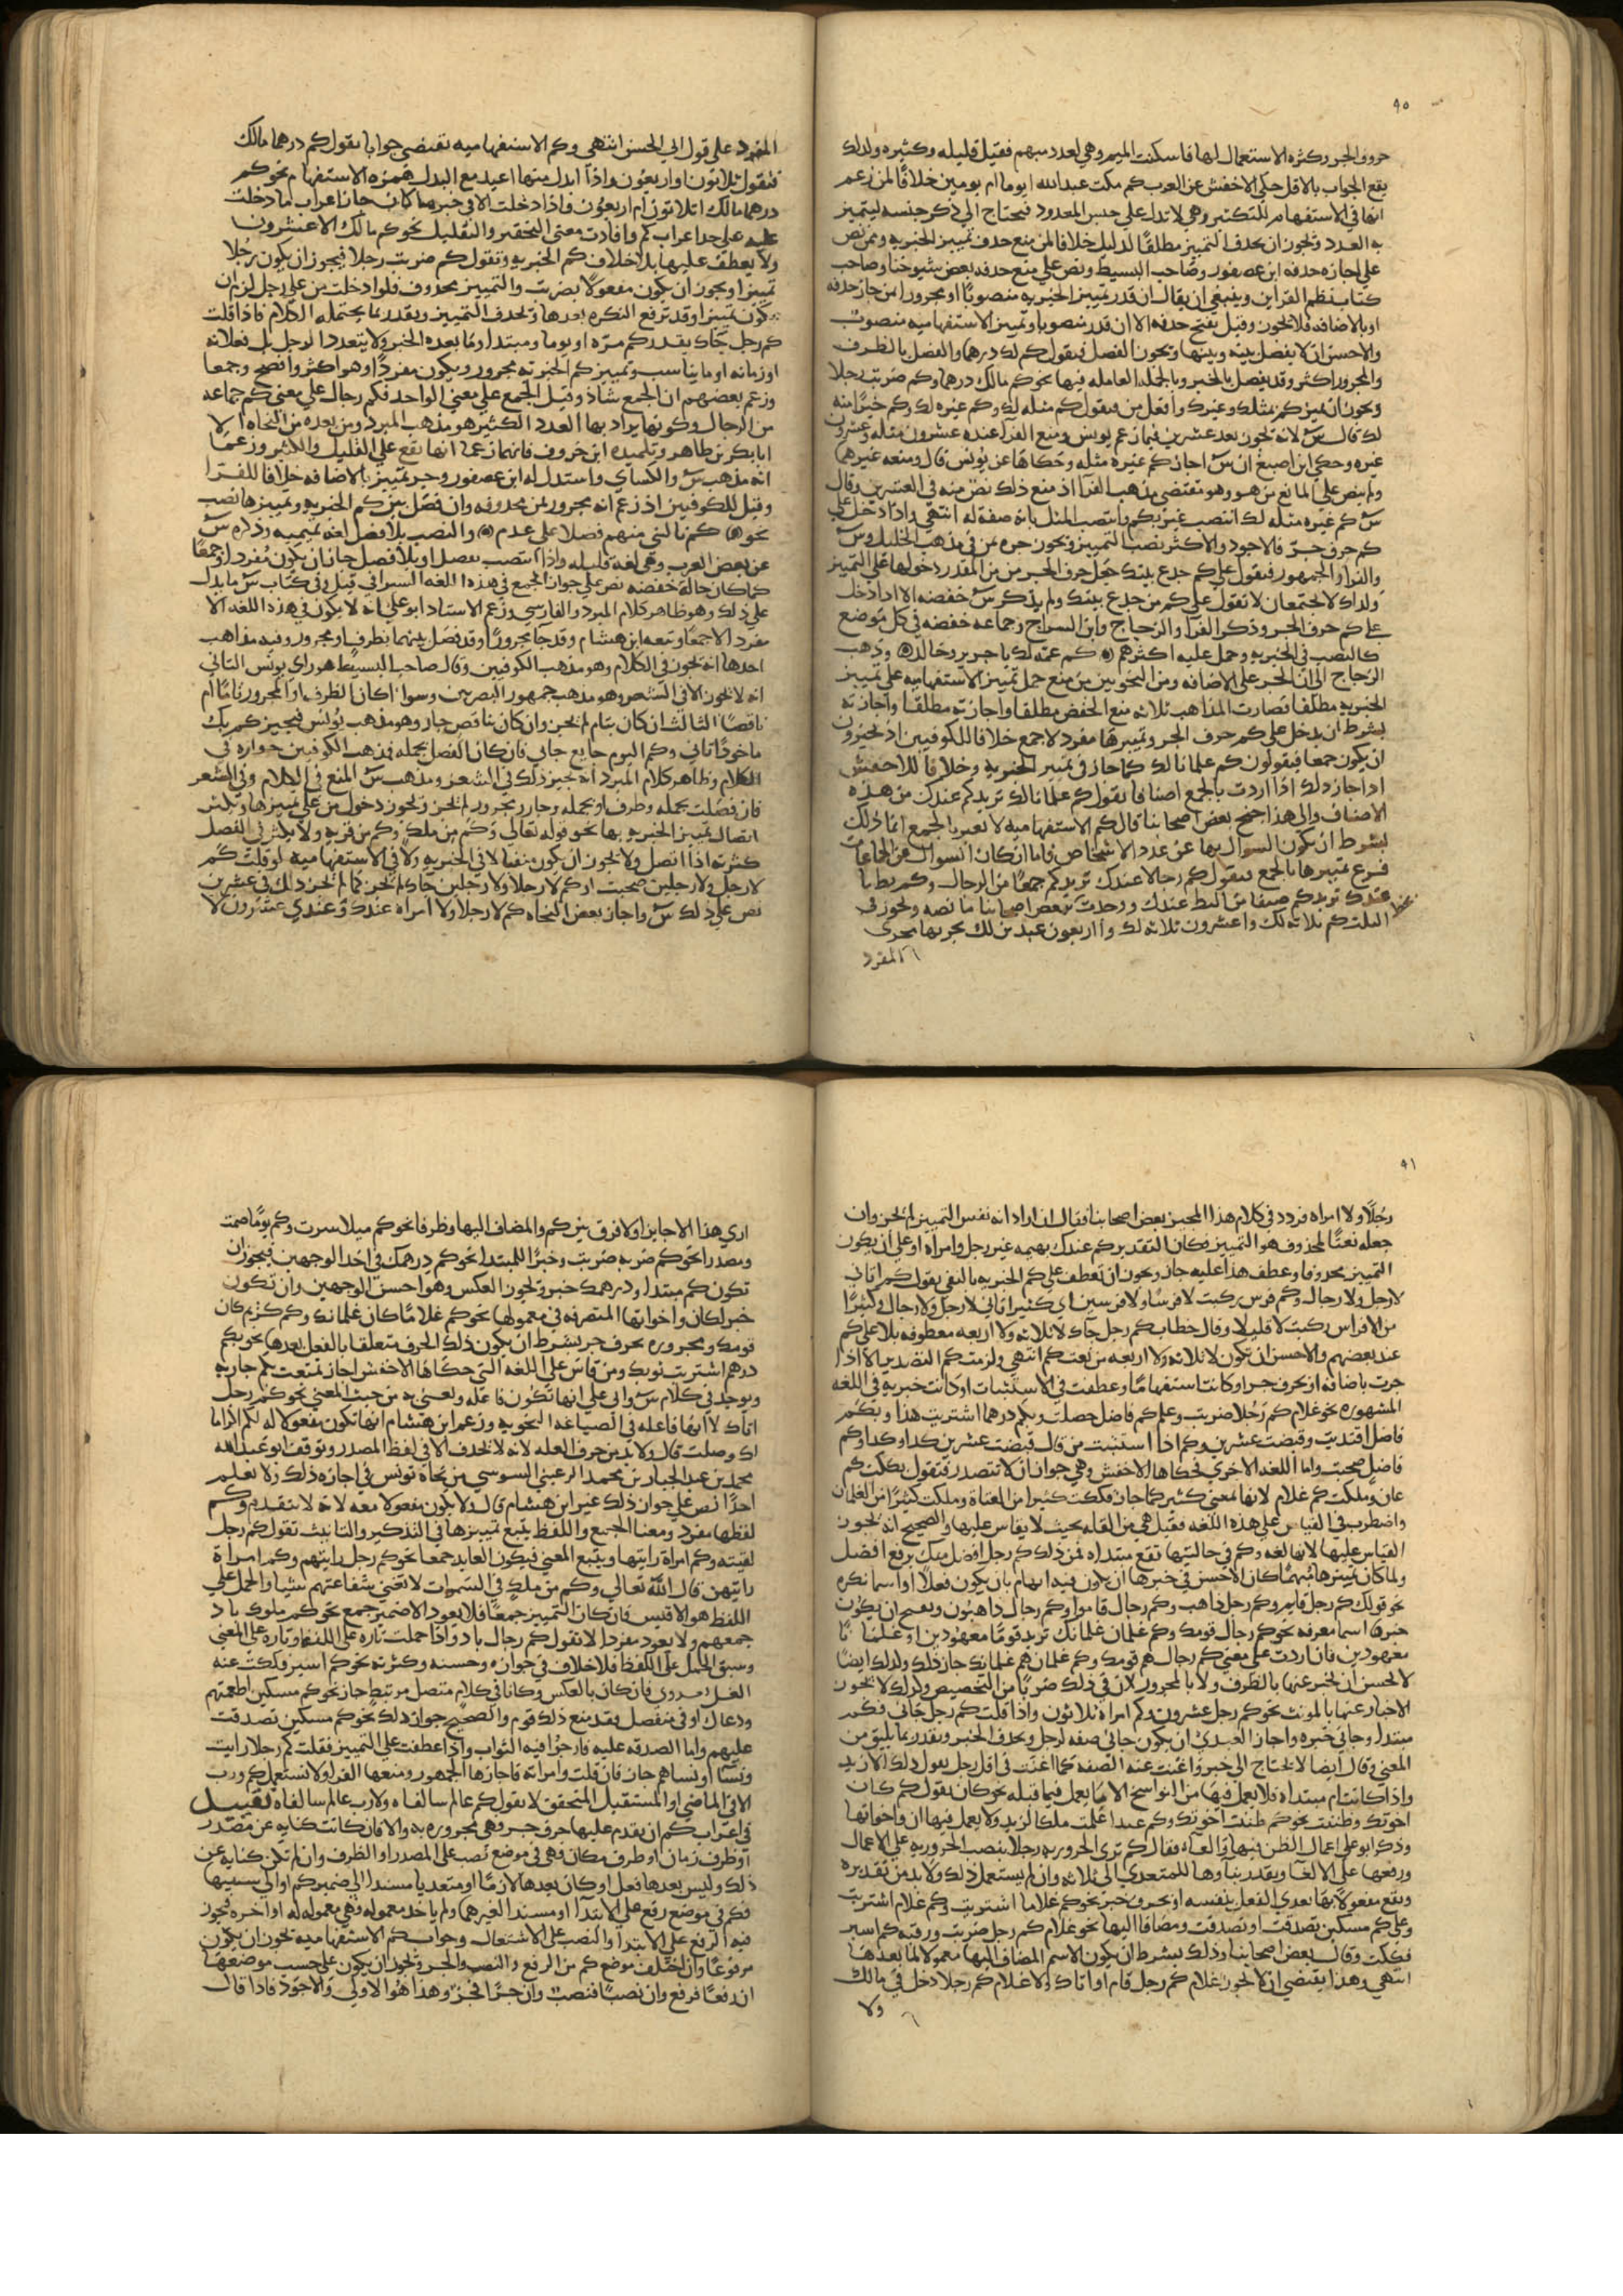 ٩٠
حروف الجر وكثره الاستعمال لها فاسكنت الميم وهي لعدد مبهم فقيل قليله وكثيره ولذلك
يقع الجواب بالاقل حكي الاخفش عن العرب كم مكث عبدالله ايوما ام يومين خلافا لمن زعم
انها في الاستفهام للتكثير وهي لا تدل علي جنس المعدود فيحتاج الي ذكر جنسه ليتميز
به العدد ويجوز ان يحذف التمييز مطلقا لدليل خلافا لمن منع حذف تمييز الخبريه وممن نص
علي اجازه حذفه ابن عصفور وصاحب البسيط ونص علي منع حذفه بعض شيوخنا وصاحب
كتاب نظم الفرايد وينبغي ان يقال ان قدر تمييز الخبريه منصوبا او مجرورا بمن جاز حذفه
او بالاضافه فلا يجوز وقيل يقبح حذفه الا ان قدر منصوبا وتمييز الاستفهاميه منصوب
والاحسن ان لا يفصل بينه وبينها ويجوز الفصل فيقول كم لك درهما والفصل بالظرف
والمجرور اكثر وقد يفصل بالخبر وبالجمله العامله فيها نحو كم مالك درهما وكم ضربت رجلا
ويجوز ان تميز كم بمثلك وغيرك وافعل من فيقول كم مثله لك وكم غيره لك وكم خيرا منه
لك قال س لانه يجوز بعد عشرين فيما زعم يونس ومنع الفرا عنده عشرون مثله وعشرون
غيره وحكي ابن اصبغ ان س اجاز كم غيره مثله وحكاها عن يونس قال ومنعه غيرهما
ولم ينص علي المانع من هو وهو مقتضي مذهب الفرا اذ منع ذلك نص منه في العشرين وقال
س كم غيره مثله لك انتصب غير بكم وانتصب المثل بانه صفه له انتهي واذا دخل علي
كم حرف جر فالاجود والاكثر نصب التمييز ويجوز جره بمن في مذهب الخليل وس
والفرا والجمهور فيقول علي كم جذع بيتك جعل حرف الجر من من المقدر دخولها علي التمييز
ولذلك لا يجتمعان لا تقول علي كم من جذع بيتك ولم يذكر س خفضه الا اذا دخل
علي كم حرف الجر وذكر الفرا والزجاج وابن السراج وجماعه خفضه في كل موضع
كالنصب في الخبريه وحمل عليه اكثرهم كم عمه لك يا جرير وخاله وذهب
الزجاج الي ان الجر علي الاضافه ومن النحويين من منع حمل تمييز الاستفهاميه علي تمييز
الخبريه مطلقا فصارت المذاهب ثلاثه منع الخفض مطلقا واجازته مطلقا واجازته
بشرط ان يدخل علي كم حرف الجر وتمييزها مفرد لا جمع خلافا للكوفيين اذ يجيزون
ان يكون جمعا فيقولون كم غلمانا لك كما جاز في تمييز الخبريه وخلافا للاخفش
اذ اجاز ذلك اذا اردت بالجمع اصنافا نقول كم غلمانا لك تريد كم عندك من هذه
الاصناف والي هذا جنح بعض اصحابنا قال كم الاستفهاميه لا تعبر بالجمع انما ذلك
بشرط ان يكون السوال بها عن عدد الاشخاص فاما ان كان السوال عن الجماعات
فسوغ تمييزها بالجمع فيقول كم رجالا عندك تريد كم جمعا من الرجال وكم بطا
عندك تريد كم صنفا من البط عندك ووجدت بخط بعض اصحابنا ما نصه ويجوز في
الثلث كم ثلاثه لك واعشرون ثلاثه لك واربعون عبدين لك يجريها مجري
المفرد
المفرد علي قول ابي الحسن انتهي وكم الاستفهاميه تقتضي جوابا تقول كم درهما مالك
فتقول ثلاثون او اربعون واذا ابدل منها اعيد مع البدل همزه الاستفهام نحو كم
درهما مالك اثلاثون ام اربعون واذا دخلت الا في خبرها كان اعراب ما دخلت
عليه علي حد اعراب كم وافادت معني التحقير والتقليل نحو كم مالك الا عشرون
ولا يعطف عليها بلا خلاف كم الخبريه وتقول كم ضربت رجلا فيجوز ان يكون رجلا
تمييزا ويجوز ان يكون مفعولا بضربت والتمييز محذوف فلو ادخلت من علي رجل لزم ان
يكون تمييزا وقد ترفع النكره بعدها ويحذف التمييز ويقدر بما يحتمله الكلام فاذا قلت
كم رجل جاك يقدر كم مره او يوما ومبتدا وما بعده الخبر ولا يتعدد الرجل بل فعلاته
او زمانه او ما يناسب وتمييز كم الخبريه مجرور ويكون مفردا وهو اكثر وافصح وجمعا
وزعم بعضهم ان الجمع شاذ وقيل الجمع علي معني الواحد فكم رجال علي معني كم جماعه
من الرجال وكونها يراد بها العدد الكثير هو مذهب المبرد ومن بعده من النحاه الا
ابابكر بن طاهر وتلميذه ابن خروف فانهما زعما انها تقع علي القليل والكثير وزعما
انه مذهب س والكساي واستدل له ابن عصفور وجر تمييز بالاضافه خلافا للفرا
وقيل للكوفيين اذ زعم انه مجرور بمن محذوفه وان فصل بين كم الخبريه وتمييزها نصب
نحو كم نالني منهم فضلا علي عدم والنصب بلا فصل لغه تميميه وذكره س
عن بعض العرب وهي لغه قليله واذا انتصب بفصل او بلا فصل جاز ان يكون مفردا وجمعا
كما كان حاله خفضه نص علي جواز الجمع في هذه اللغه السيرافي قيل وفي كتاب س ما يدل
علي ذلك وهو ظاهر كلام المبرد والفارسي وزعم الاستاد ابو علي انه لا يكون في هذه اللغه الا
مفرد لا جمعا وتبعه ابن هشام وقد جا مجرورا وقد فصل بينهما بظرف او مجرور وفيه مذاهب
احدها انه يجوز في الكلام وهو مذهب الكوفيين وقال صاحب البسيط هو راي يونس الثاني
انه لا يجوز الا في الشعر وهو مذهب جمهور البصريين وسوا اكان الظرف او المجرور تاما ام
ناقصا الثالث ان كان بتام لم يجز وان كان بناقص جاز وهو مذهب يونس فيجيز كم بك
ماخوذ اتاني وكم اليوم جايع جاني فان كان الفصل بجمله فمذهب الكوفيين جوازه في
الكلام وظاهر كلام المبرد انه يجيز ذلك في الشعر ومذهب س المنع في الكلام وفي الشعر
فان فصلت بجمله وظرف او بجمله وجار ومجرور لم يجز ويجوز دخول من علي تمييزها ويكثر
اتصال تمييز الخبريه بها نحو قوله تعالي وكم من ملك وكم من قريه ولا يكثر في الفصل
كثرته اذا اتصل ولا يجوز ان يكون منفيا لا في الخبريه ولا في الاستفهاميه لو قلت كم
لا رجل ولا رجلين صحبت او كم لا رجلا ولا رجلين جاك لم يجز كما لم يجز ذلك في عشرين
نص علي ذلك س واجاز بعض النحاه كم لا رجلا ولا امراه عندك وعندي عشرون لا
٩١
رجلا ولا امراه فردد في كلام هذا المجيز بعض اصحابنا فقال ان اراد انه نفس التمييز لم يجز وان
جعله نعتا لمحذوف هو التمييز فكان التقدير كم عندك بهيمه غير رجل وامراه او علي ان يكون
التمييز محذوفا وعطف هذا عليه جاز ويجوز ان تعطف علي كم الخبريه بالنفي يقول كم اتاني
لا رجل ولا رجال وكم فرس ركبت لا فرسا ولا فرسين اي كثيرا اتاني لا رجل ولا رجال وكثيرا
من الافراس ركبت لا قليلا وقال خطاب كم رجل جاك لا ثلاثه ولا اربعه معطوفه بلا علي كم
عند بعضهم والاحسن ان يكون لا ثلاثه ولا اربعه من نعت كم انتهي ولزمت كم التصدير الا اذا
جرت باضافه او بحرف جر او كانت استفهاما وعطفت في الاستثبات او كانت خبريه في اللغه
المشهوره نحو غلام كم رجلا ضربت وعلي كم فاضل حصلت وبكم درهما اشتريت هذا وبكم
فاضل اقتديت وقبضت عشرين وكم اذا استثبت من قال قبضت عشرين كذا وكذا وكم
فاضل صحبت واما اللغه الاخري فحكاها الاخفش وهي جواز ان لا تتصدر فتقول فككت كم
عان وملكت كم غلام لانها لمعني كثير كما جاز فككت كثيرا من العناه وملكت كثيرا من الغلمان
واضطرب في القياس علي هذه اللغه فقيل هي من القله بحيث لا يقاس عليها والصحيح انه يجوز
القياس عليها لانها لغه وكم في حالتيها تقع مبتداه فمن ذلك كم رجل افضل منك برفع افضل
ولما كان تمييزها مبهما كان الاحسن في خبرها ان يكون فيه ابهام بان يكون فعلا او اسما نكره
نحو قولك كم رجل قايم وكم رجل ذاهب وكم رجال قاموا وكم رجال ذاهبون ويقبح ان يكون
خبرها اسما معرفه نحو كم رجال قومك وكم غلمان غلمانك تريد قوما معهودين او غلمانا
معهودين فان اردت علي معني كم رجال هم قومك وكم غلمان هم غلمانك جاز ذلك ولذلك ايضا
لا يحسن ان يخبر عنها بالظرف ولا بالمجرور لان في ذلك ضربا من التخصيص ولذلك لا يجوز
الاخبار عنها بالمونث نحو كم رجل عشرون وكم امراه ثلاثون واذا قلت كم رجل جاني فكم
مبتدا وجاني خبره واجاز العبدي ان يكون جاني صفه لرجل ويحذف الخبر ويقدر بما يليق من
المعني وقال ايضا لا يحتاج الي خبر واغنت عنه الصفه كما اغنت في اقل رجل يقول ذلك الا زيد
واذا كانت كم مبتداه فلا يعمل فيها من النواسخ الا ما يعمل فيما قبله نحو كان تقول كم كان
اخوتك وظننت نحو كم ظننت اخوتك وكم عبدا علمت ملكا لزيد ولا يعمل فيها ان واخواتها
وذكر ابو علي اعمال الظن فيها والغاه فقال كم تري الحروريه رجلا بنصب الحروريه علي الاعمال
ورفعها علي الالغا ويقدر بناوها للمتعدي الي ثلاثه وان لم يستعمل ذلك ولا بد من تقديره
وتقع مفعولا بها تعدي الفعل بنفسه او بحرف جر نحو كم غلاما اشتريت وكم غلام اشتريت
وعلي كم مسكين تصدقت او تصدقت ومضافا اليها نحو غلام كم رجل ضربت ورقبه كم اسير
فككت وقال بعض اصحابنا وذلك بشرط ان يكون الاسم المضاف اليها معمولا لما بعدها
انتهي وهذا يقتضي ان لا يجوز غلام كم رجل قام او اتاك ولا غلام كم رجلا دخل في مالك
ولا
اري هذا الا جايزا ولا فرق بين كم والمضاف اليها وظرفا نحو كم ميلا سرت وكم يوما صمت
ومصدرا نحو كم ضربه ضربت وخبرا للمبتدا نحو كم درهمك في احد الوجهين فيجوز ان
تكون كم مبتدا ودرهمك خبر ويجوز العكس وهو احسن الوجهين وان تكون
خبر لكان واخواتها المتصرفه في معمولها نحو كم غلاما كان غلمانك وكم كريم كان
قومك ومجروره بحرف جر بشرط ان يكون ذلك الحرف متعلقا بالفعل بعدها نحو بكم
درهم اشتريت ثوبك ومن قاس علي اللغه التي حكاها الاخفش اجاز تمتعت بكم جاريه
ويوجد في كلام س وابي علي انها تكون فاعله ويعني به من حيث المعني نحو كم رجل
اتاك لا انها فاعله في الصناعه النحويه وزعم ابن هشام انها تكون مفعولا له لكم اكراما
لك وصلت قال ولا بد من حرف العله لانه لا يحذف الا في لفظ المصدر وتوقف ابو عبدالله
محمد بن عبد الجبار بن محمد الرعيني السوسي من نحاه تونس في اجازه ذلك ولا نعلم
احدا نص علي جواز ذلك غير ابن هشام قال ولا يكون مفعولا معه لانه لا يتقدم وكم
لفظها مفرد ومعناها الجمع واللفظ يتبع تمييزها في التذكير والتانيث تقول كم رجل
لقيته وكم امراه رايتها ويتبع المعني فيكون العايد جمعا نحو كم رجل رايتهم وكم امراه
رايتهن قال الله تعالي وكم من ملك في السموات لا تغني شفاعتهم شيا والحمل علي
اللفظ هو الاقيس فان كان التمييز جمعا فلا يعود الا ضمير جمع نحو كم ملوك باد
جمعهم ولا يعود مفردا لا تقول كم رجال باد واذا حملت تاره علي اللفظ وتاره علي المعني
وسبق الحمل علي اللفظ فلا خلاف في جوازه وحسنه وكثرته نحو كم اسير فككت عنه
الغل فان كان بالعكس وكانا في كلام متصل مرتبط جاز نحو كم مسكين اطعمتهم
ودعا لك او في منفصل فقد منع ذلك قوم والصحيح جواز ذلك نحو كم مسكين تصدقت
عليهم واما الصدقه عليه فارجوا فيه الثواب واذا عطفت علي التمييز فقلت كم رجلا رايت
ونسا او نساهم جاز فان قلت وامراته فاجازها الجمهور ومنعها الفرا ولا تستعمل كم ورب
الا في الماضي او المستقبل المتحقق لا تقول كم عالم سالقاه ولا رب عالم سالقاه تفصيل
في اعراب كم ان يتقدم عليها حرف جر فهي مجروره به والا فان كانت كنايه عن مصدر
او ظرف زمان او ظرف مكان فهي في موضع نصب علي المصدر او الظرف وان لم تكن كنايه عن
ذلك وليس بعدها فعل او كان بعدها لازما او متعديا مسندا الي ضمير كم او الي سببيها
فكم في موضع رفع علي الابتدا او مسندا لغيرهما ولم ياخذ معموله فهي معموله له او اخذه فيجوز
فيه الرفع علي الابتدا والنصب علي الاشتغال وجواب كم الاستفهاميه يجوز ان يكون
مرفوعا وان اختلف موضع كم من الرفع والنصب والجر ويجوز ان يكون علي حسب موضعها
ان رفعا فرفع وان نصبا فنصب وان جرا فجر وهذا هو الاولي والاجود فاذا قال